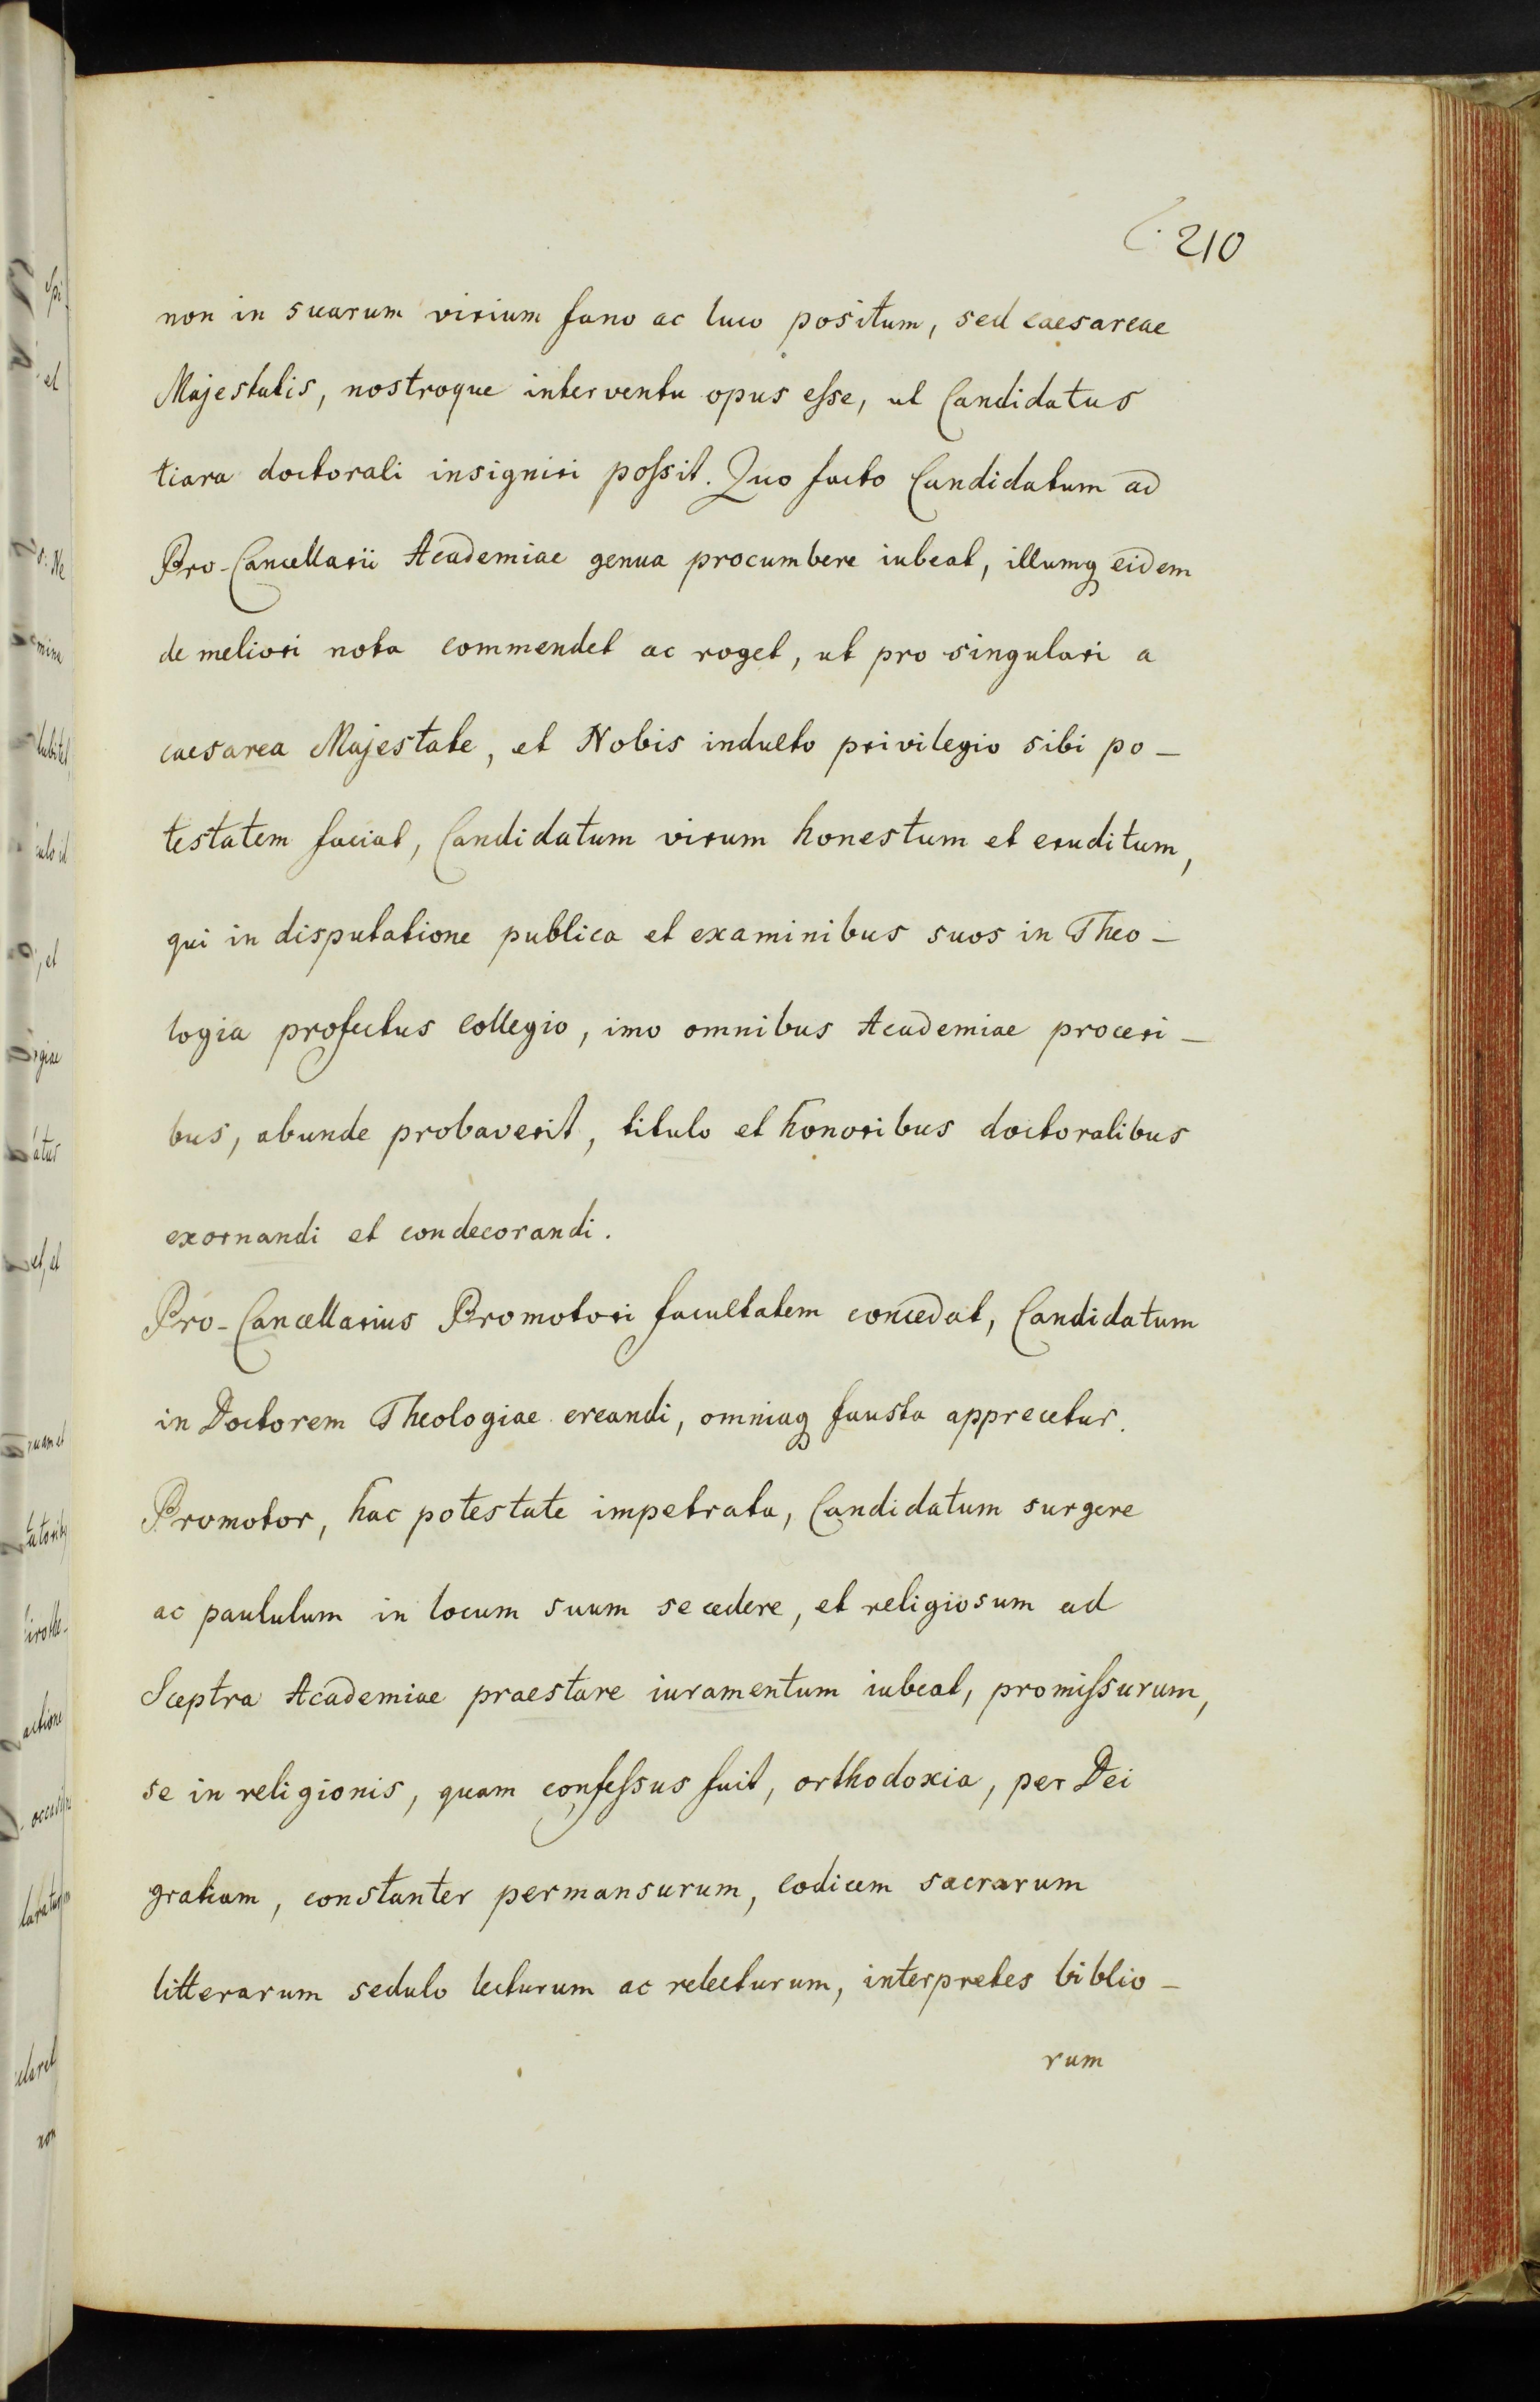 210
non in suarum virium fano ac luco positum, sed caesareae
Majestatis, nostroque interventu opus esse, ut Candidatus
tiara doctorali insigniri possit. Quo facto Candidatum ad
Pro-Cancellarii Academiae genua procumbere iubeat, illumq eidem
de meliori nota commendet ac roget, ut pro singulari a
caesarea Majestate, et Nobis indulto privilegio sibi po-
testatem faciat, Candidatum virum honestum et eruditum,
qui in disputatione publica et examinibus suos in Theo-
logia profectus Collegio, imo omnibus Academiae proceri-
bus, abunde probaverit, titulo et honoribus doctoralibus
exornandi et condecorandi.
Pro-Cancellarius Promotori facultatem concedat, Candidatum
in Doctorem Theologiae creandi, omniaq fausta apprecetur.
Promotor, hac potestate impetrata, Candidatum surgere
ac paululum in locum suum secedere, et religiosum ad
Sceptra Academiae praestare iuramentum iubeat, promissurum,
se in religionis, quam confessus fuit, orthodoxia, per Dei
gratiam, constanter permansurum, codicem sacrarum
litterarum sedulo lecturum ac relecturum, interpretes biblio-
rum